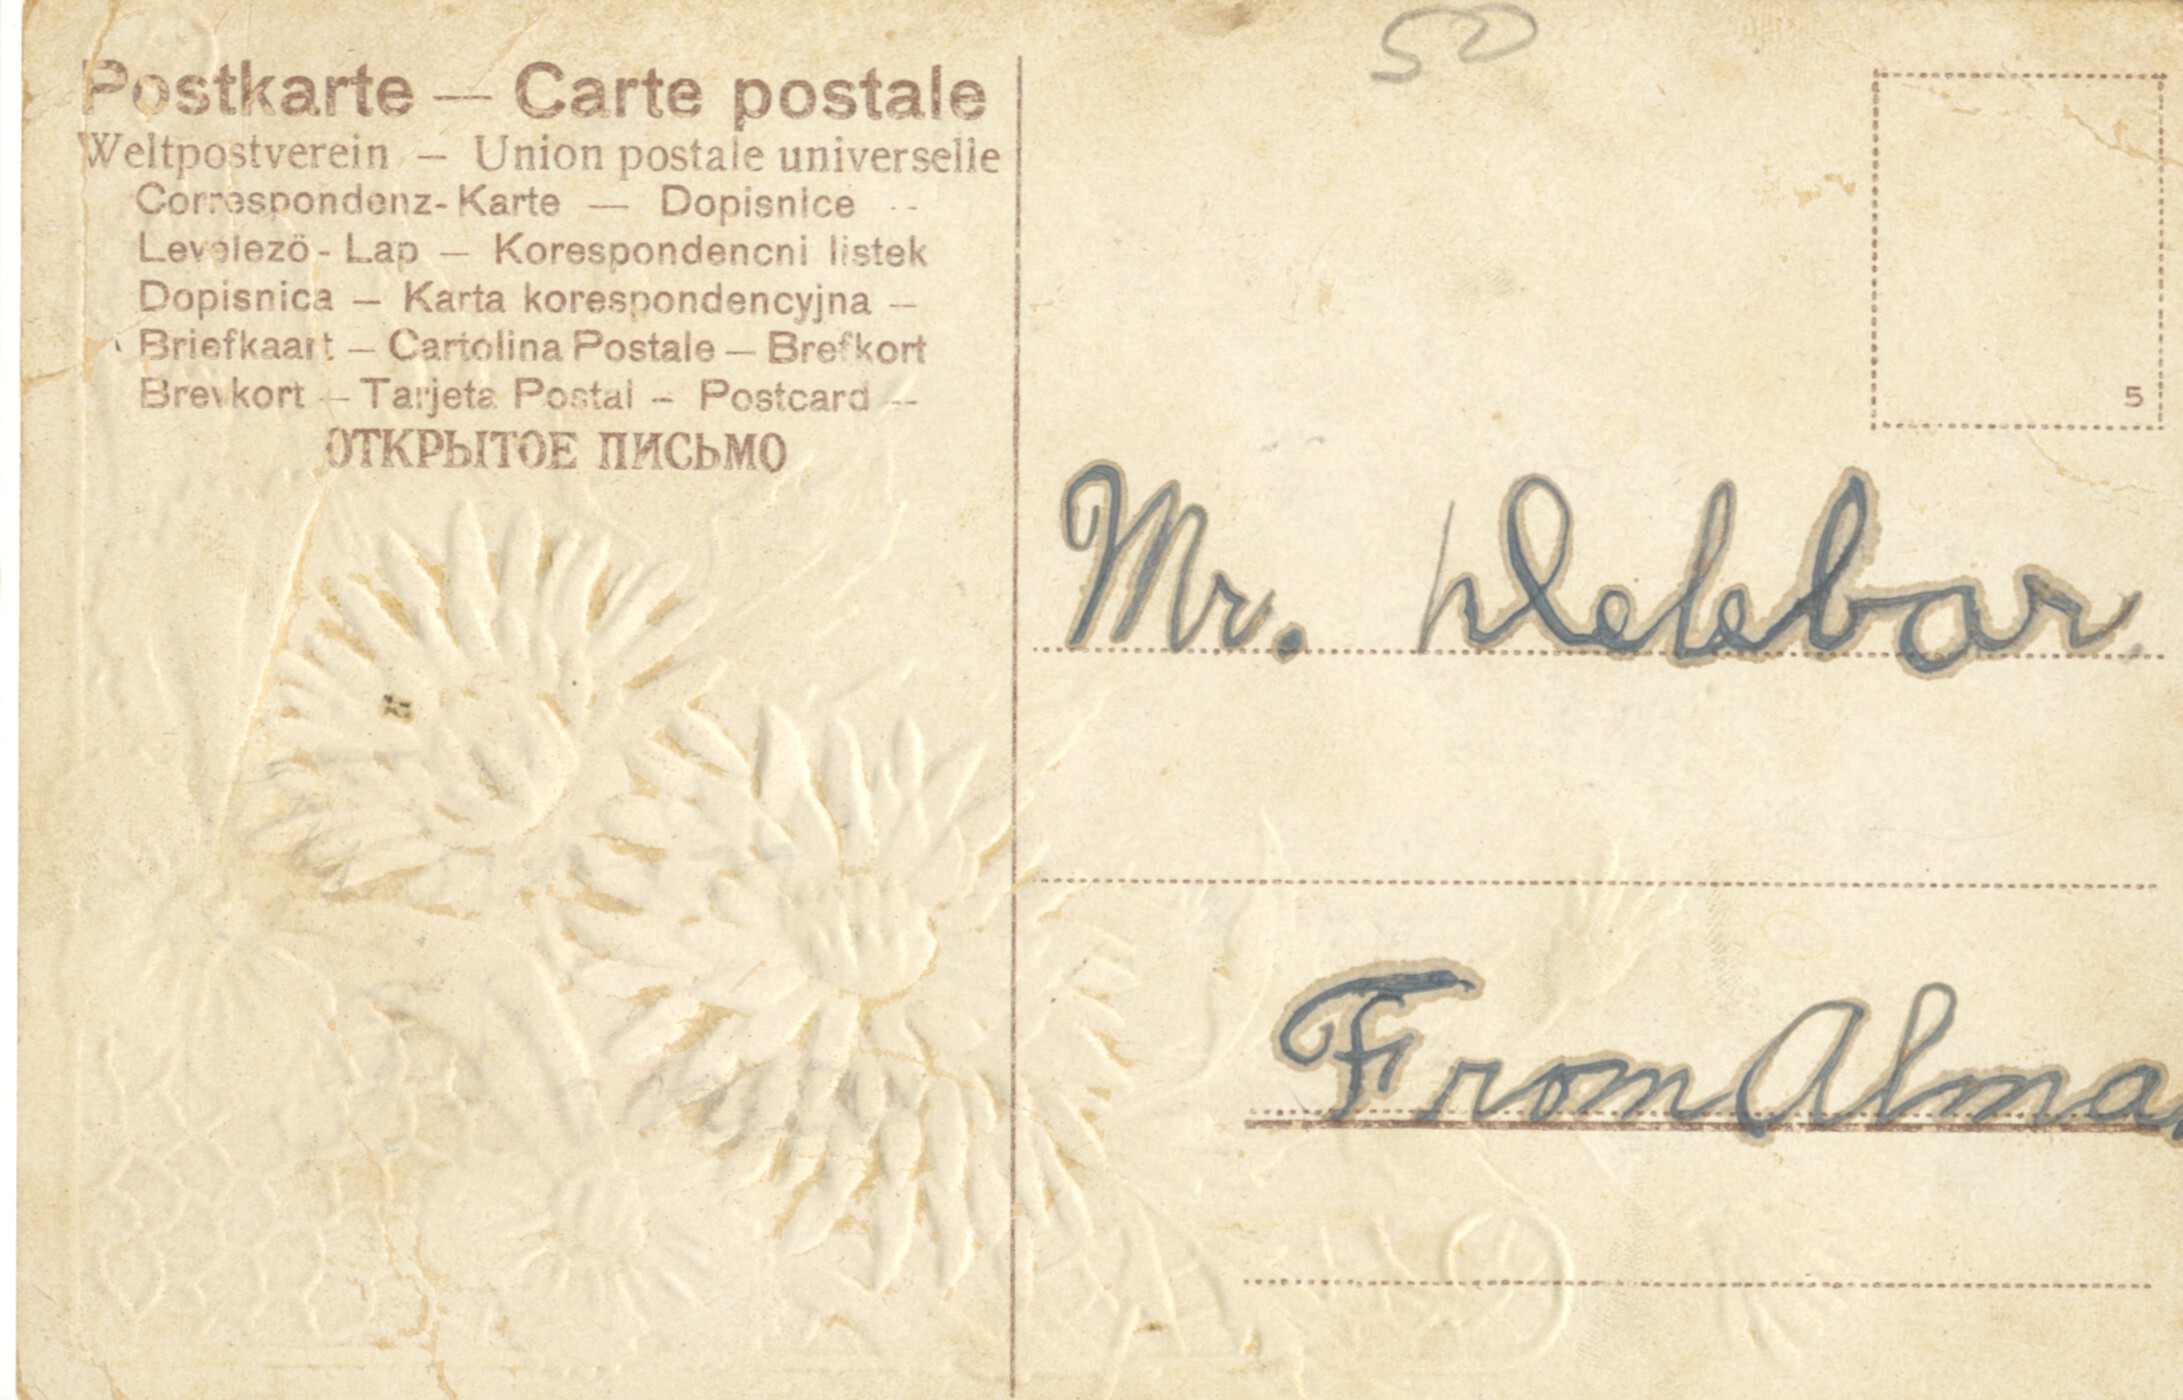 50
Postkarte — Carte postale
Weltpostverein — Union postale universelle
Correspondenz-Karte — Dopisnice --
Levelező-Lap — Korespondencni listek
Dopisnica — Karta korespondencyjna —
Briefkaart — Cartolina Postale — Brefkort
Brevkort — Tarjeta Postal — Postcard --
ОТКРЫТОЕ ПИСЬМО
5
Mr.
From Alma.